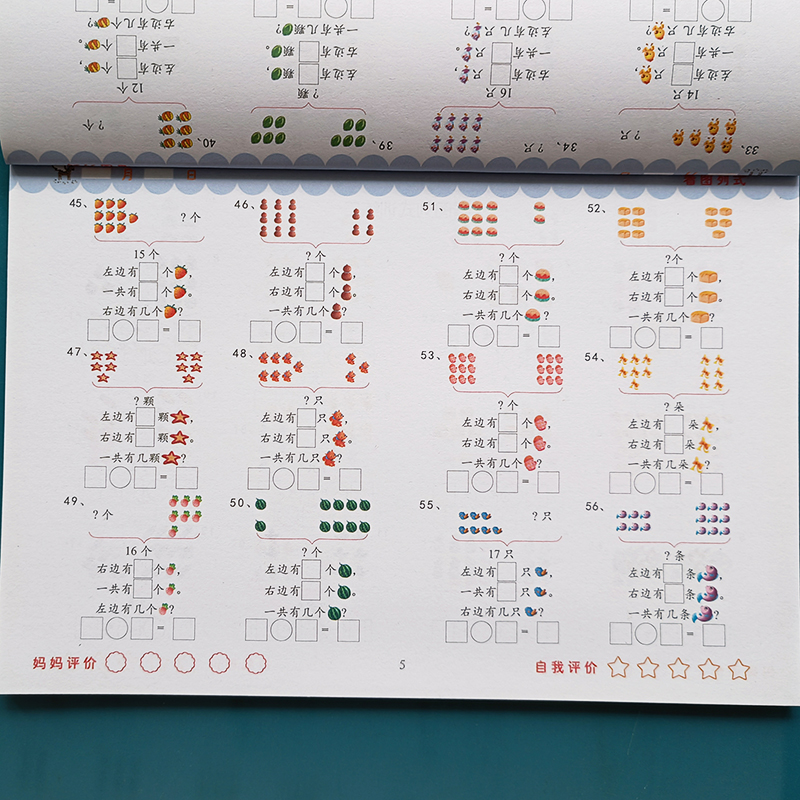 33、 ?只
14只
左边有 只,
一共有 只。
右边有几只?
34、 ?只
16只
右边有 只,
一共有 只。
左边有几只?
39、
?颗
左边有 颗,
右边有 颗。
一共有几颗?
40、 ?个
12个
左边有 个,
一共有 个。
右边有几个?
月 日
看图列式
45、 ?个
15个
左边有 个 ,
一共有 个 。
右边有几个 ?
=
46、
?个
左边有 个 ,
右边有 个 。
一共有几个 ?
=
51、
?个
左边有 个 ,
右边有 个 。
一共有几个 ?
=
52、
?个
左边有 个 ,
右边有 个 。
一共有几个 ?
=
47、
?颗
左边有 颗 ,
右边有 颗 。
一共有几颗 ?
=
48、
?只
左边有 只 ,
右边有 只 。
一共有几只 ?
=
53、
?个
左边有 个 ,
右边有 个 。
一共有几个 ?
=
54、
?朵
左边有 朵 ,
右边有 朵 。
一共有几朵 ?
=
49、 ?个
16个
右边有 个 ,
一共有 个 。
左边有几个 ?
=
50、
?个
左边有 个 ,
右边有 个 。
一共有几个 ?
=
55、 ?只
17只
左边有 只 ,
一共有 只 。
右边有几只 ?
=
56、
?条
左边有 条 ,
右边有 条 。
一共有几条 ?
=
妈妈评价
5
自我评价